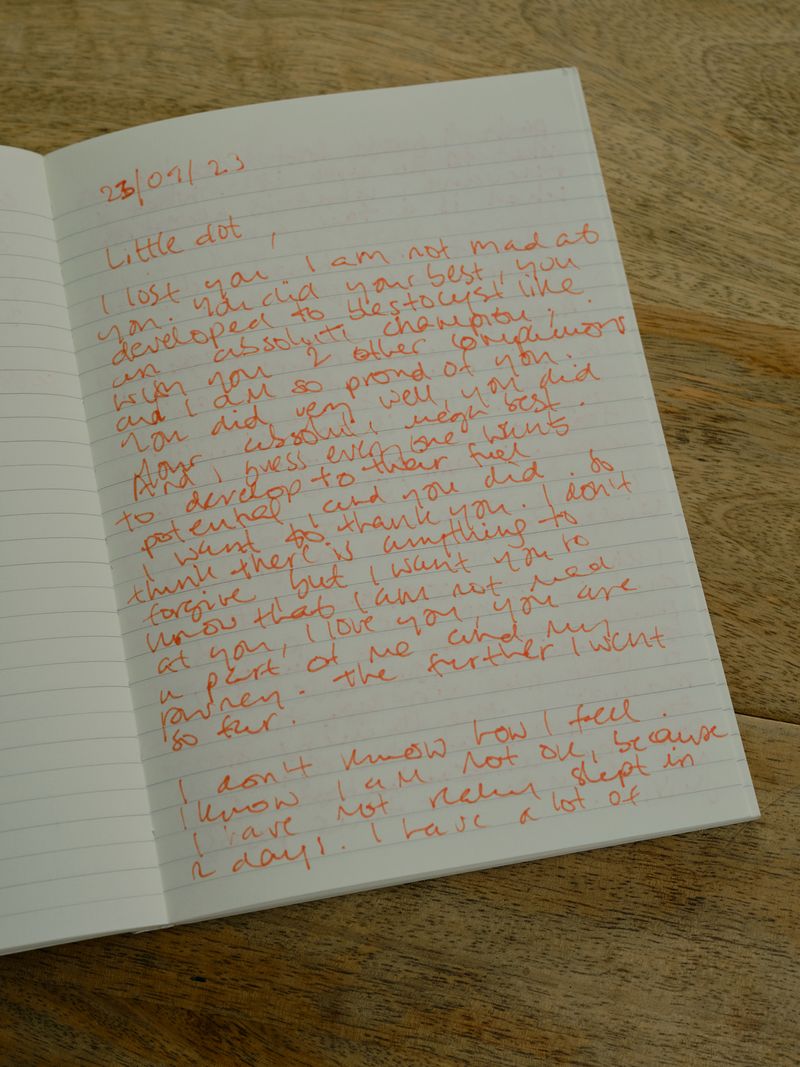 23/09/23
Little dot,
I lost you I am not mad at
you. you did your best, you
developed to blestocyst like
an absolute champion,
with you 2 other companions
and I am so proud of you.
You did very well, you did
your absolut, megn best.
And I guess everyone wants
to develop to their full
potential and you did. So
I want to thank you. I don't
think there is anything to
forgive but I want you to
know that I am not mad
at you, I love you, you are
a part of me and my
. The further I went
so far.
I don't know how I feel.
I know I am not ok, because
I have not really slept in
2 days. I have a lot of